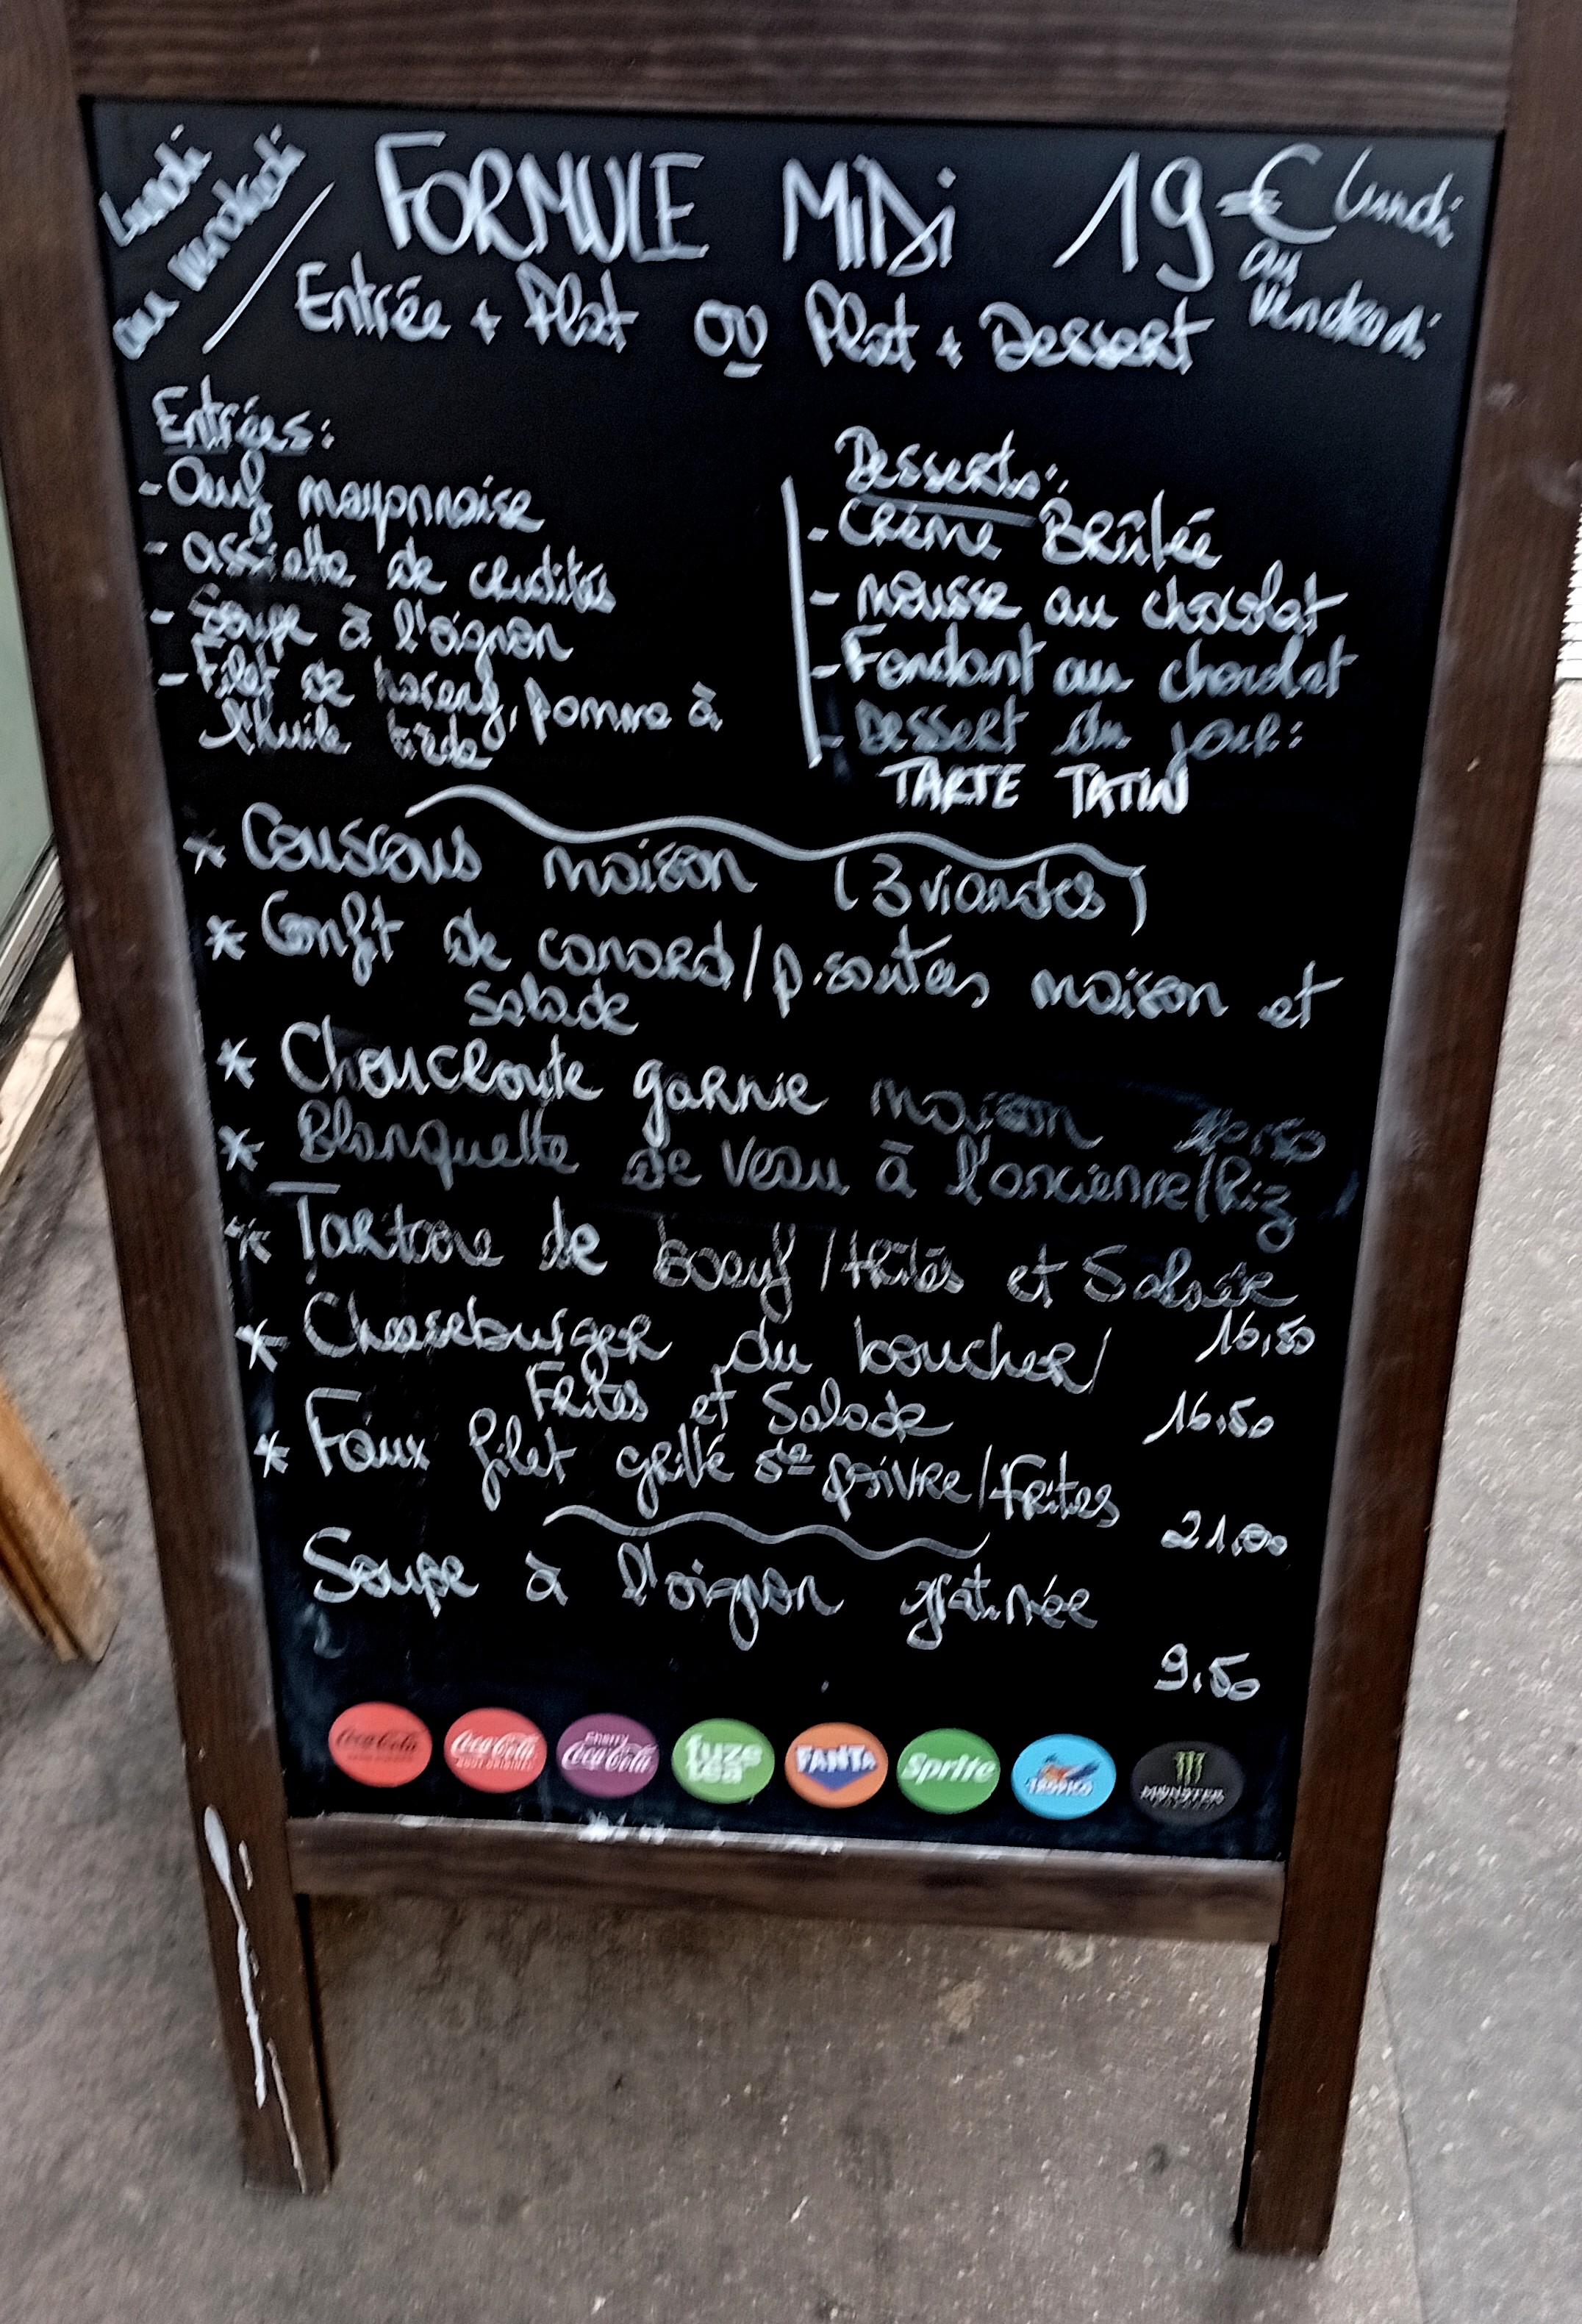 Lundi
au vendredi
FORMULE MiDi 19€ Lundi
au
Vendredi
Entrée + Plat OU Plat + Dessert
Entrées:
- Oeuf mayonnaise
- assiette de crudités
- Soupe à l'oignon
- Filet de hareng, pomme à
l'huile tiède
Desserts:
- Crème Brûlée
- mousse au chocolat
- Fondant au chocolat
- Dessert du jour:
TARTE TATIN
* Couscous maison (3 viandes)
* Confit de canard/p. sautées maison et
Salade
* Choucroute garnie maison
* Blanquette de veau à l'ancienne/Riz
* Tartare de boeuf/frites et Salade
16,50
* Cheeseburger du boucher/
Frites et Salade 16,50
* Faux filet grillé sce poivre/Frites
21,00
Soupe à l'oignon gratinée
9,50
Coca-Cola
Coca-Cola
GOÛT ORIGINAL
Cherry
Coca-Cola
fuze
tea
FANTA
Sprite
TROPICO
MONSTER